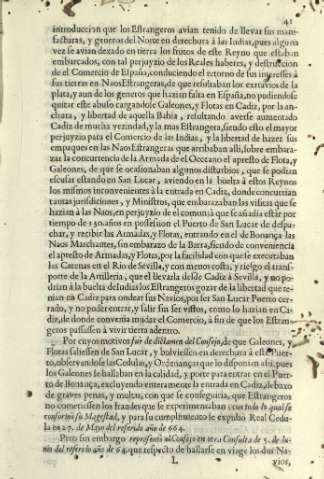 41
introduccion que los Estrangeros avian tenido de llevar sus mani-
facturas, y generos del Norte en derechura à las Indias, pues alguna
vez se avian dexado en tierra los frutos de este Reyno que estaban
embarcados, con tal perjuyzio de los Reales haberes, y destruccion
de el Comercio de España, conduciendo el retorno de sus interesses à
sus tierras en Naos Estrangeras, de que resultaban los extravios de la
plata, y aun de los generos que hazian falta en España, no pudiendose
quitar este abuso cargandose Galeones, y Flotas en Cadiz, por la an-
chura, y libertad de aquella Bahia, resultando averse aumentado
Cadiz de mucha vezindad, y la mas Estrangera, siendo esto el mayor
perjuyzio para el Comercio de las Indias, y la libertad de hazer sus
empaques en las Naos Estrangeras que arribaban alli, sobre embara-
zar la concurrencia de la Armada de el Occeano el apresto de Flota, y
Galeones, de que se ocasionaban algunos disturbios, que se podian
escusar estando en San Lucar, aviendo en la buelta à estos Reynos
los mismos inconvenientes à la entrada en Cadiz, donde concurrian
tantas jurisdiciones, y Ministros, que embarazaban las visitas que se
hazian à las Naos, en perjuyzio de el comun à que se añadia estàr por
tiempo de 130. años en possession el Puerto de San Lucar de despa-
char, y recibir las Armadas, y Flotas, entrando en el de Bonança las
Naos Marchantes, sin embarazo de la Barra, siendo de conveniencia
el apresto de Armadas, y Flotas, por la facilidad con que se executaban
las Carenas en el Rio de Sevilla, y con menos costa, y riesgo el trans-
porte de la Artilleria, que el llevarla desde Cadiz à Sevilla, y no po-
drian à la buelta de Indias los Estrangeros gozar de la libertad que te-
nian en Cadiz para ondear sus Navios, por ser San Lucar Puerto cer-
rado, y no poder entrar, y salir sin ser vistos, como lo hazian en Ca-
diz, de donde convenia mudar el Comercio, à fin de que los Estran-
geros passassen à vivir tierra adentro.
Por cuyos motivos fuè de dictamen del Consejo, de que Galeones, y
Flotas saliessen de San Lucar, y bolviessen en derechura à este Puer-
to, observandose las Cedulas, y Ordenanças que lo disponian assi, pues
los Galeones se hallaban en la calidad, y porte para entrar en el Puer-
to de Bonança, excluyendo enteramente la entrada en Cadiz, debaxo
de graves penas, y multas, con que se conseguiria, que Estrangeros
no cometiessen los fraudes que se experimentaban con todo lo qual se
conformò su Magestad, y para su cumplimiento se expidiò Real Cedu-
la en 27. de Mayo del referido año de 664.
Pero sin embargo representò el Consejo en otra Consulta de 5. de Ju-
nio del referido año de 64. que respecto de hallarse en viage los dos Na-
L vios,